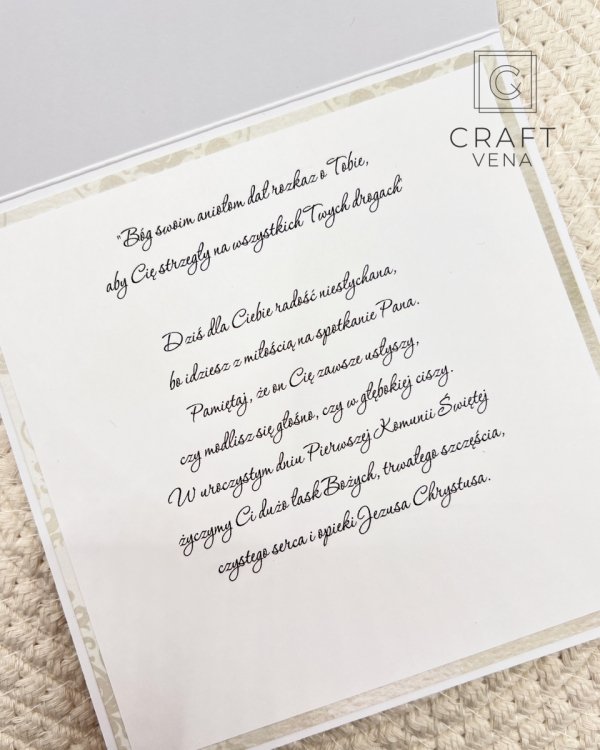 CRAFT
VENA
"Bóg swoim aniołom dał rozkaz o Tobie,
aby Cię strzegły na wszystkich Twych drogach"
Dziś dla Ciebie radość niesłychana,
bo idziesz z miłością na spotkanie Pana.
Pamiętaj, że on Cię zawsze usłyszy,
czy modlisz się głośno, czy w głębokiej ciszy.
W uroczystym dniu Pierwszej Komunii Świętej
życzymy Ci dużo łask Bożych, trwałego szczęścia,
czystego serca i opieki Jezusa Chrystusa.